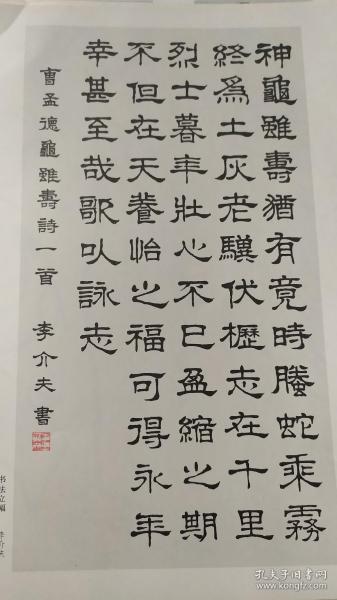 神龜雖壽猶有竟時騰蛇乘霧
終為土灰老驥伏櫪志在千里
烈士暮年壯心不已盈縮之期
不但在天養怡之福可得永年
幸甚至哉歌以詠志
曹孟德龜雖壽詩一首 李介夫書
书法立幅 李介夫
孔夫子旧书网
www.kongfz.com